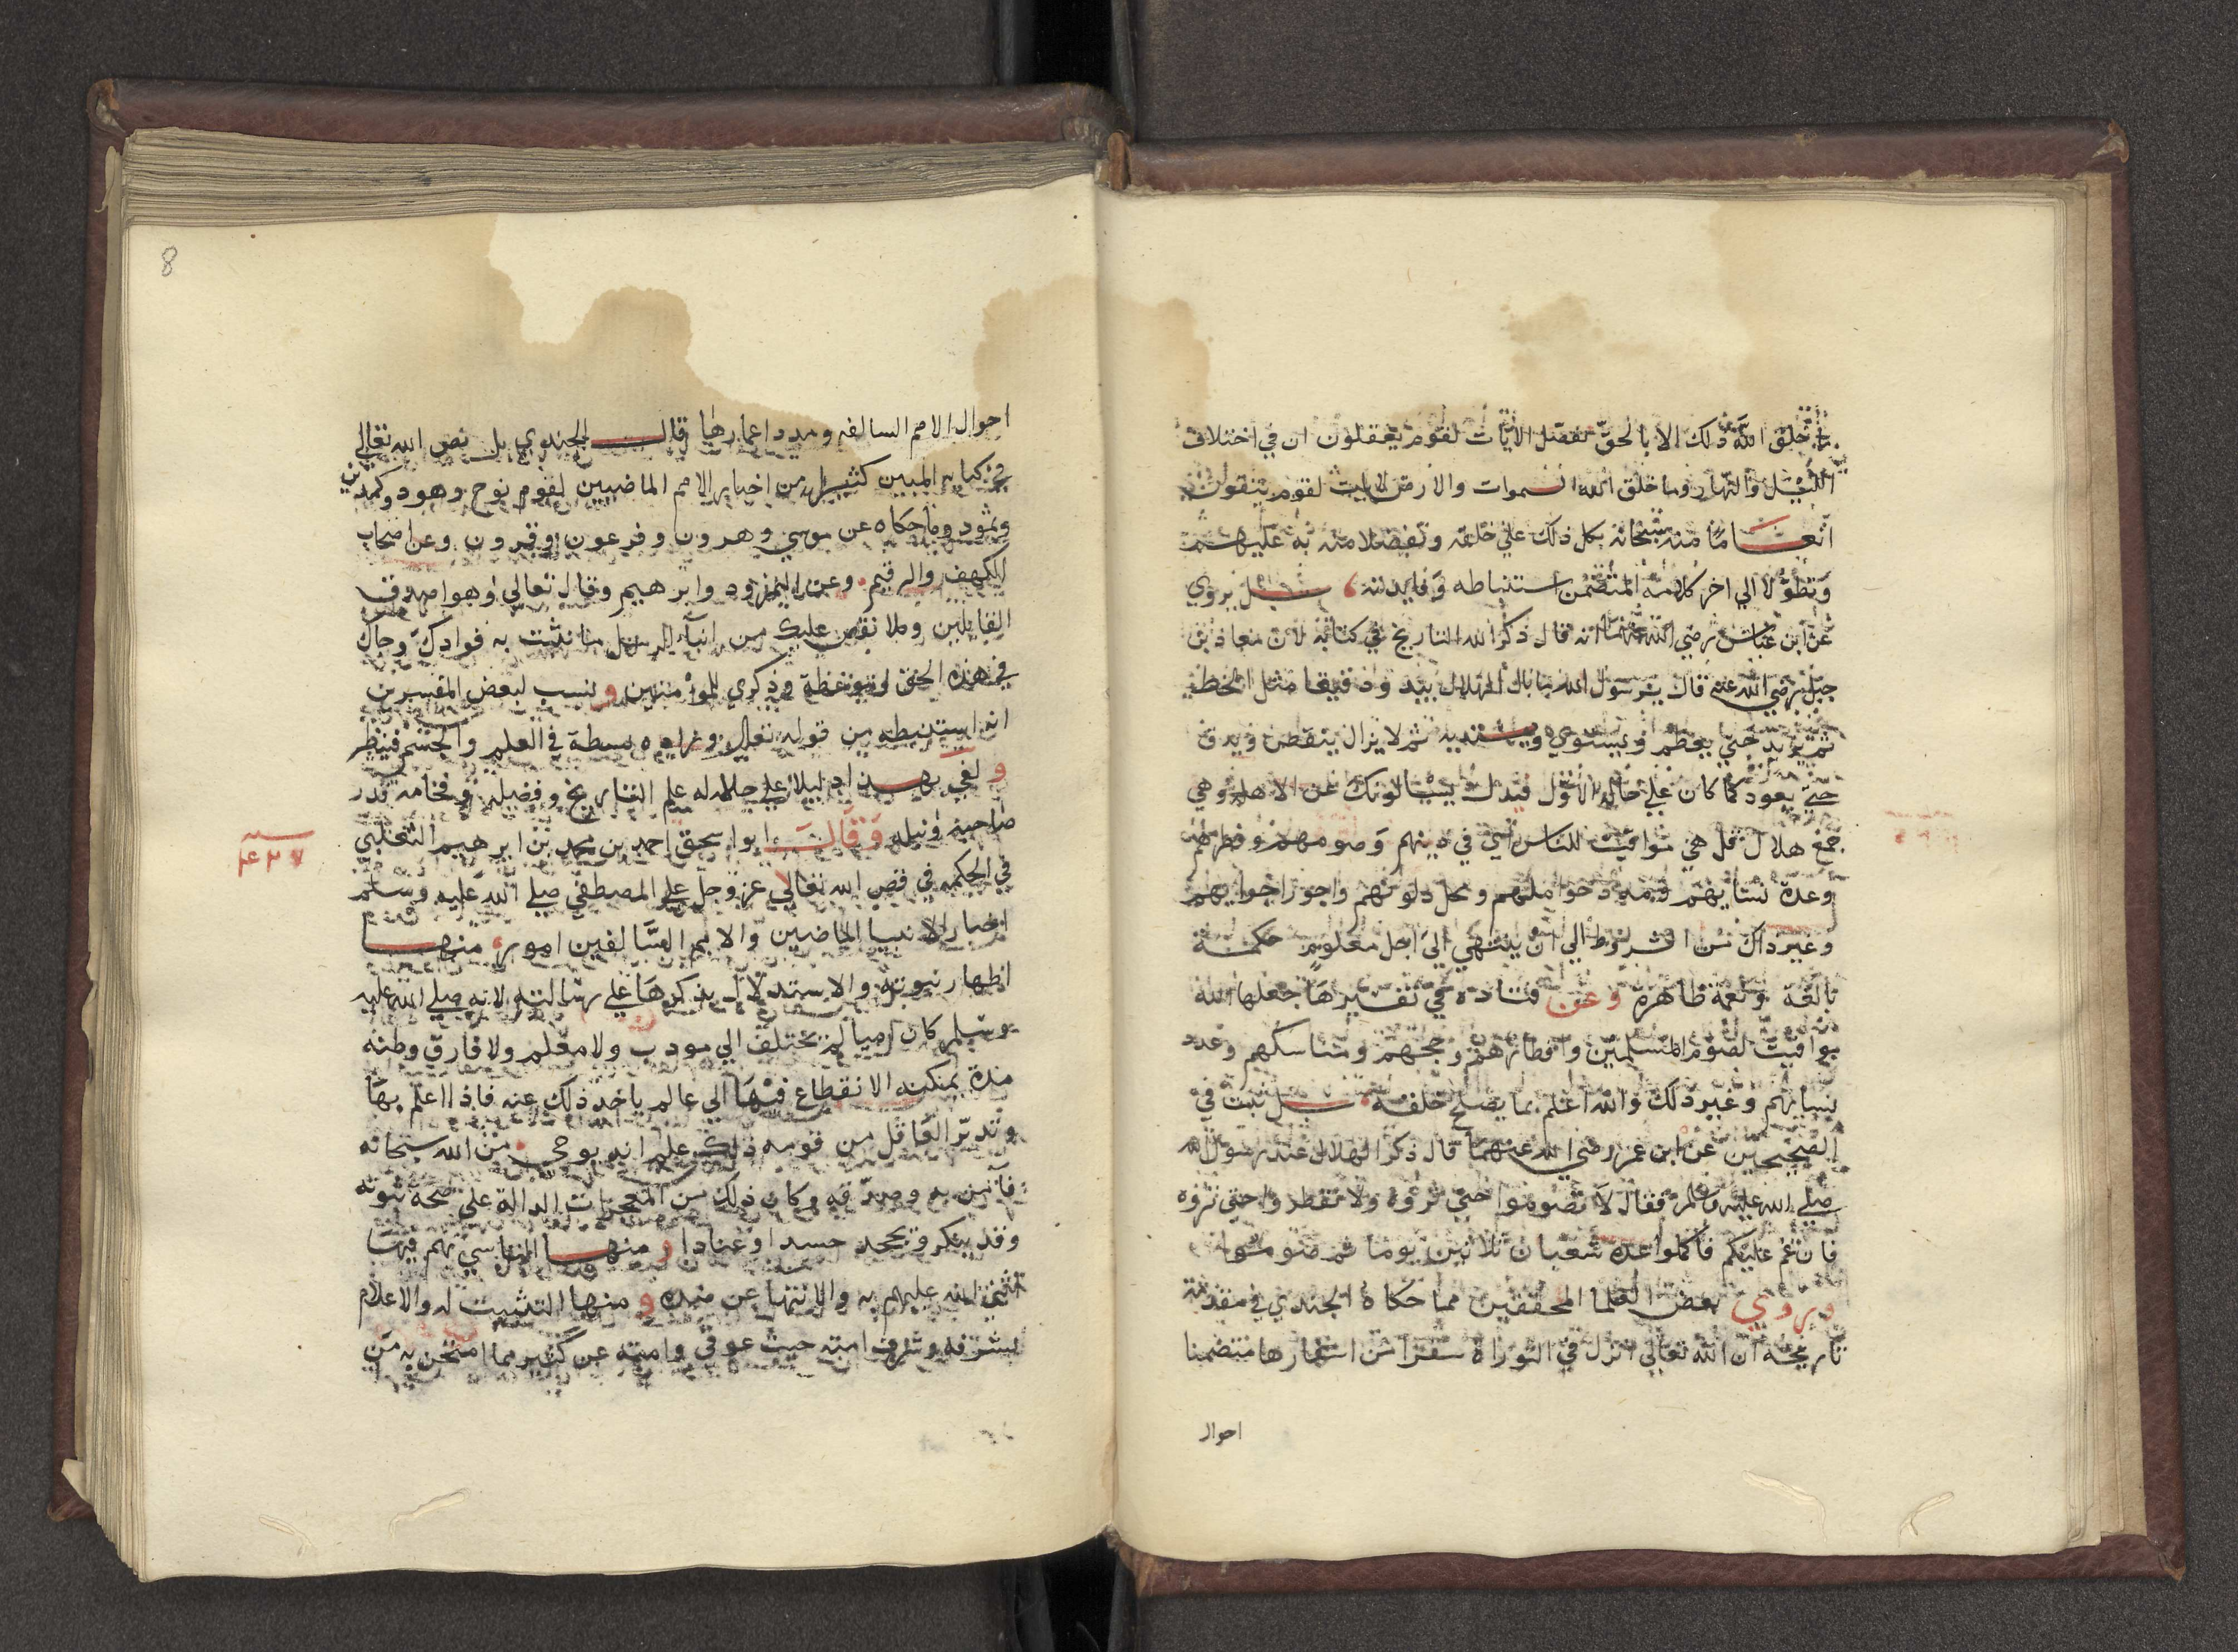 ما خلق الله ذلك الا بالحق نفصل الايات لقوم يعقلون ان في اختلاف
الليل والنهار وما خلق الله السموات والارض لايت لقوم يتقون
انعاما منه سبحانه بكل ذلك علي خلقه وتفضلا منه به عليهم
وتطولا الي اخر كلامه المتضمن استنباطه وفايدته بل يروي
عن ابن عباس رضي الله عنهما انه قال ذكر الله التاريخ في كتابه لان معاذ بن
جبل رضي الله عنه قال يرسول الله ما بال الهلال يبدو دقيقا مثل الخيط
ثم يزيد حتي يعظم ويستوي ويستدير ثم لا يزال ينقص ويدق
حتي يعود كما كان علي حاله الاول فنزل يسالونك عن الاهلة وهي
جمع هلال قل هي مواقيت للناس اي في دينهم وصومهم وفطرهم
وعدة نسايهم ومدد حواملهم ومحل ديونهم واجور اجرايهم
وغير ذاك من الشروط الي ان ينتهي الي اجل معلوم حكمة
بالغة ونعمة ظاهرة وعن قتادة في تفسيرها جعلها الله
مواقيت لصوم المسلمين وافطارهم وحجهم ومناسكهم وعدد
نسايهم وغير ذلك والله اعلم بما يصلح خلقه بل ثبت في
الصحيحين عن ابن عمر رضي الله عنهما قال ذكر الهلال عند رسول الله
صلي الله عليه وسلم فقال لا تصوموا حتي تروه ولا تفطروا حتي تروه
فان غم عليكم فاكملوا عدة شعبان ثلاثين يوما ثم صوموا
ويروي بعض العلما المحققين مما حكاه الجندي في مقدمة
تاريخه ان الله تعالي انزل في التوراة سفرا من اسفارها متضمنا
احوال
8
احوال الامم السالفه ومدد اعمارها قال الجندي بل نص الله تعالي
في كتابه المبين كثيرا من اخبار الامم الماضيين لقوم نوح وهود وكمدين
وثمود وما حكاه عن موسي وهرون وفرعون وقرون وعن اصحاب
الكهف والرقيم وعن النمرود وابرهيم وقال تعالي وهو اصدق
القايلين وكلا نقص عليك من انبآء الرسل ما نثبت به فوادك وجاك
في هذه الحق وموعظة وذكري للمؤمنين ونسب لبعض المفسرين
انه استنبطه من قوله تعالي وزاده بسطة في العلم والجسم فينظر
وفي بهذا دليلا علي جلاله علم التاريخ وفضيله وفخامه قدر
صاحبه ونبله وقال ابو اسحق احمد بن محمد بن ابرهيم الثعلبي
سنه ٤٢٧
في الحكمه في قص الله تعالي عز وجل علي المصطفي صلي الله عليه وسلم
اخبار الانبيا الماضيين والامم السالفين امور منها
اظهار نبوته والاستدلال بذكرها علي رسالته لانه صلي الله عليه
وسلم كان اميا لم يختلف الي مودب ولا معلم ولا فارق وطنه
مدة يمكنه الانقطاع فيها الي عالم ياخذ ذلك عنه فاذا اعلم بها
وتدبر العاقل من قومه ذلك علم انه بوحي من الله سبحانه
فآمن به وصدقه وكان ذلك من المعجزات الدالة علي صحة نبوته
وقد ينكر ويجحد حسدا وعنادا ومنها التاسي بهم فيما
اثني الله عليهم به والانتها عن ضده ومنها التثبيت له والاعلام
بشرفه وشرف امته حيث عوفي وامته عن كثير مما امتحن به من